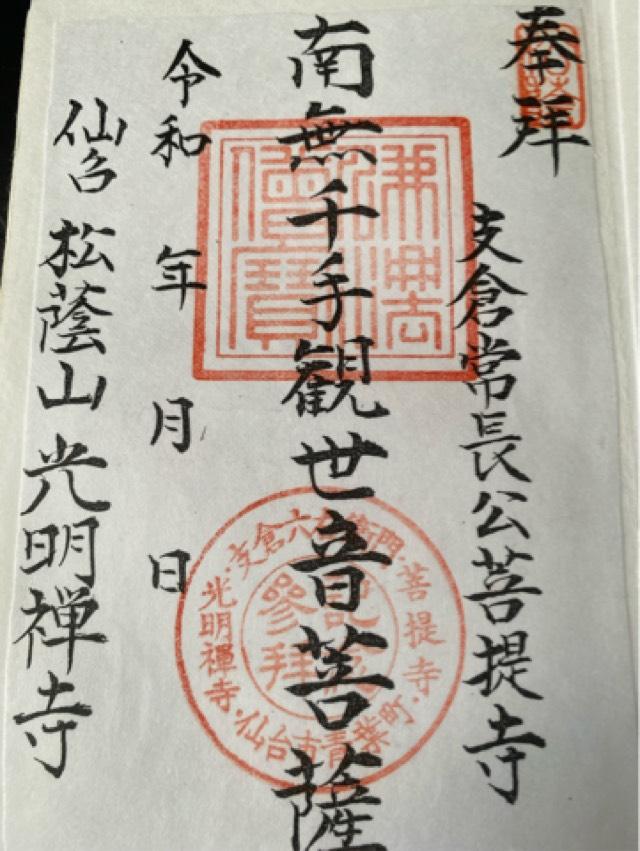 奉拝
支倉常長公菩提寺
南無千手観世音菩薩
令和 年 月 日
仙台 松蔭山光明禅寺
佛法僧寶
支倉六右衛門・菩提寺・仙台市青葉町・光明禪寺・
參拜